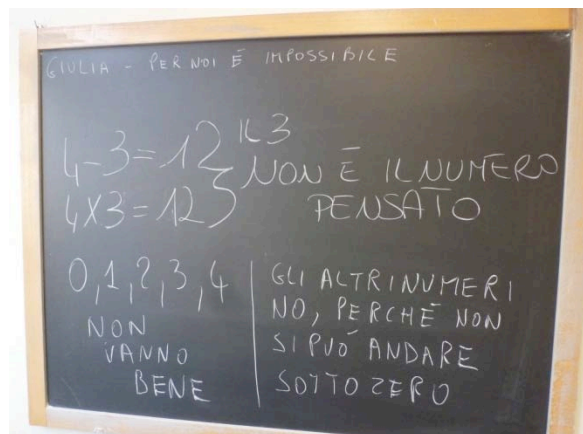 GIULIA - PER NOI È IMPOSSIBILE
4-3=12
4X3=12
IL 3
NON È IL NUMERO
PENSATO
0,1,2,3,4
NON
VANNO
BENE
GLI ALTRI NUMERI
NO, PERCHÈ NON
SI PUÒ ANDARE
SOTTO ZERO